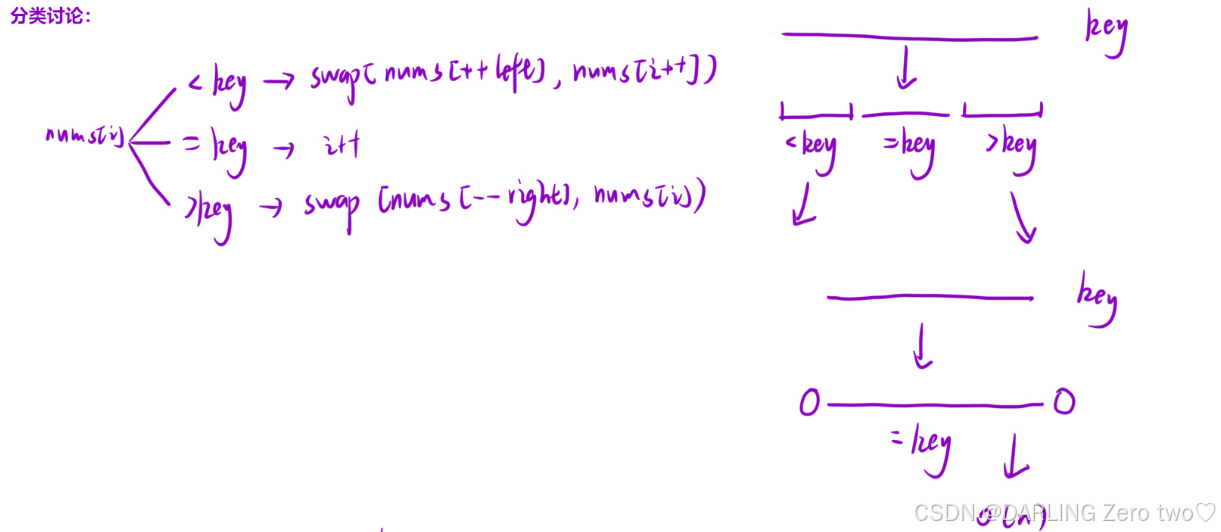 分类讨论：
< key → swap(nums[++left], nums[i++])
nums[i]
= key → i++
> key → swap(nums[--right], nums[i])
key
< key = key > key
key
0 0
= key
O(n)
CSDN @DARLING Zero two♡